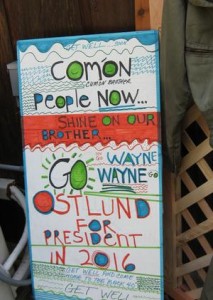 GET WELL
COM'ON
COMON BROTHER
PEOPLE NOW...
SHINE ON OUR
BROTHER...
GO GO WAYNE
GO WAYNE GO
OSTLUND
FOR
PRESIDENT
IN 2016
GET WELL AND COME
TO THE
GET WELL